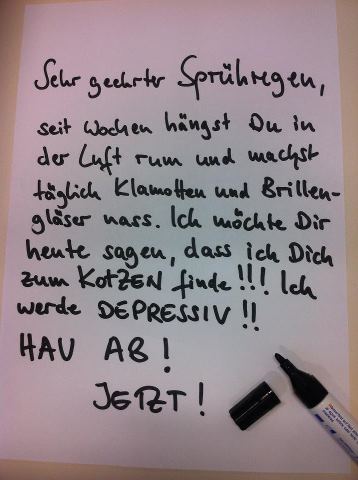 Sehr geehrter Sprühregen,
seit Wochen hängst Du in
der Luft rum und machst
täglich Klamotten und Brillen-
gläser nass. Ich möchte Dir
heute sagen, dass ich Dich
zum KOTZEN finde!!! Ich
werde DEPRESSIV!!
HAU AB!
JETZT!